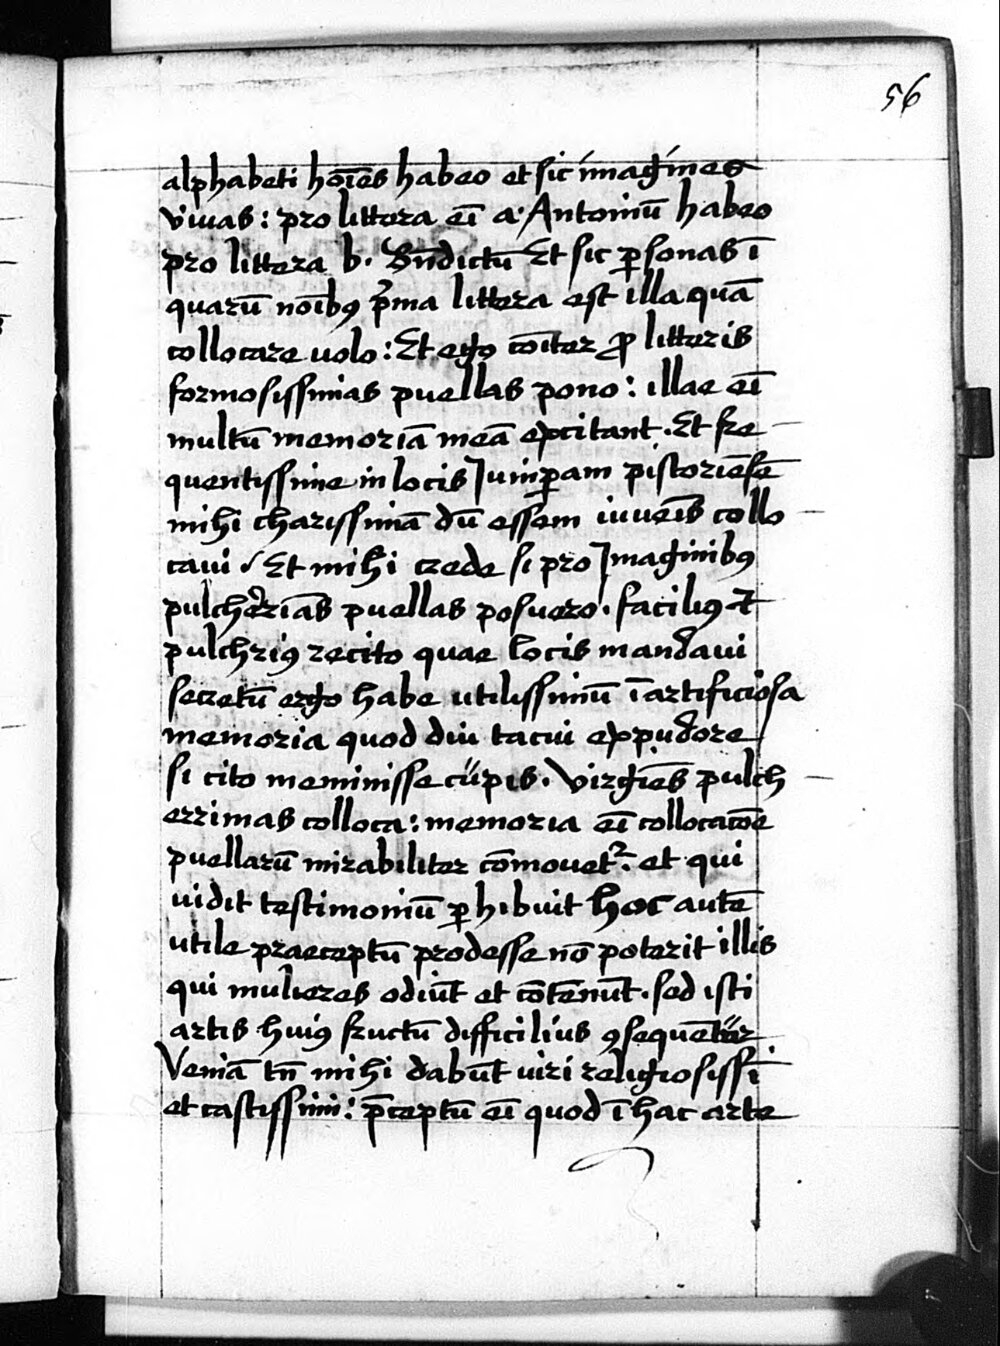 56
alphabeti hoīes habeo et sic imagines
viuas: pro littera eī a. Antoniū habeo
pro littera b. Bn̄dictū Et sic ꝑsonas ī
quarū noībꝰ p̄ma littera est illa quā
collocare uolo: Et ego cōiter ꝓ litteris
formosissimas puellas pono: illae eī
multū memoriā meā excitant. Et fre
quentissime in locis Juniꝑam pistoriēsē
mihi charissimā dū essem iuuēis collo
caui. Et mihi crede si pro Imaginibꝰ
pulcherrīas puellas posuero. faciliꝰ et
pulchriꝰ recito quae locis mandaui
secretū ergo habe utilissimū ī artificiosa
memoria quod diu tacui ex pudore
si cito meminisse cupis. Virgīes pulch
errimas colloca: memoria eī collocatōe
puellarū mirabiliter cōmouetᷣ. et qui
uidit testimoniū ꝑhibuit hoc autē
utile praeceptū prodesse nō poterit illis
qui mulieres odiūt et cōtēnūt. sed isti
artis huiꝰ fructū difficilius ꝯsequētur.
Veniā tn̄ mihi dabūt uiri religiosissī
et castissimi: p̄ceptū eī quod ī hac arte